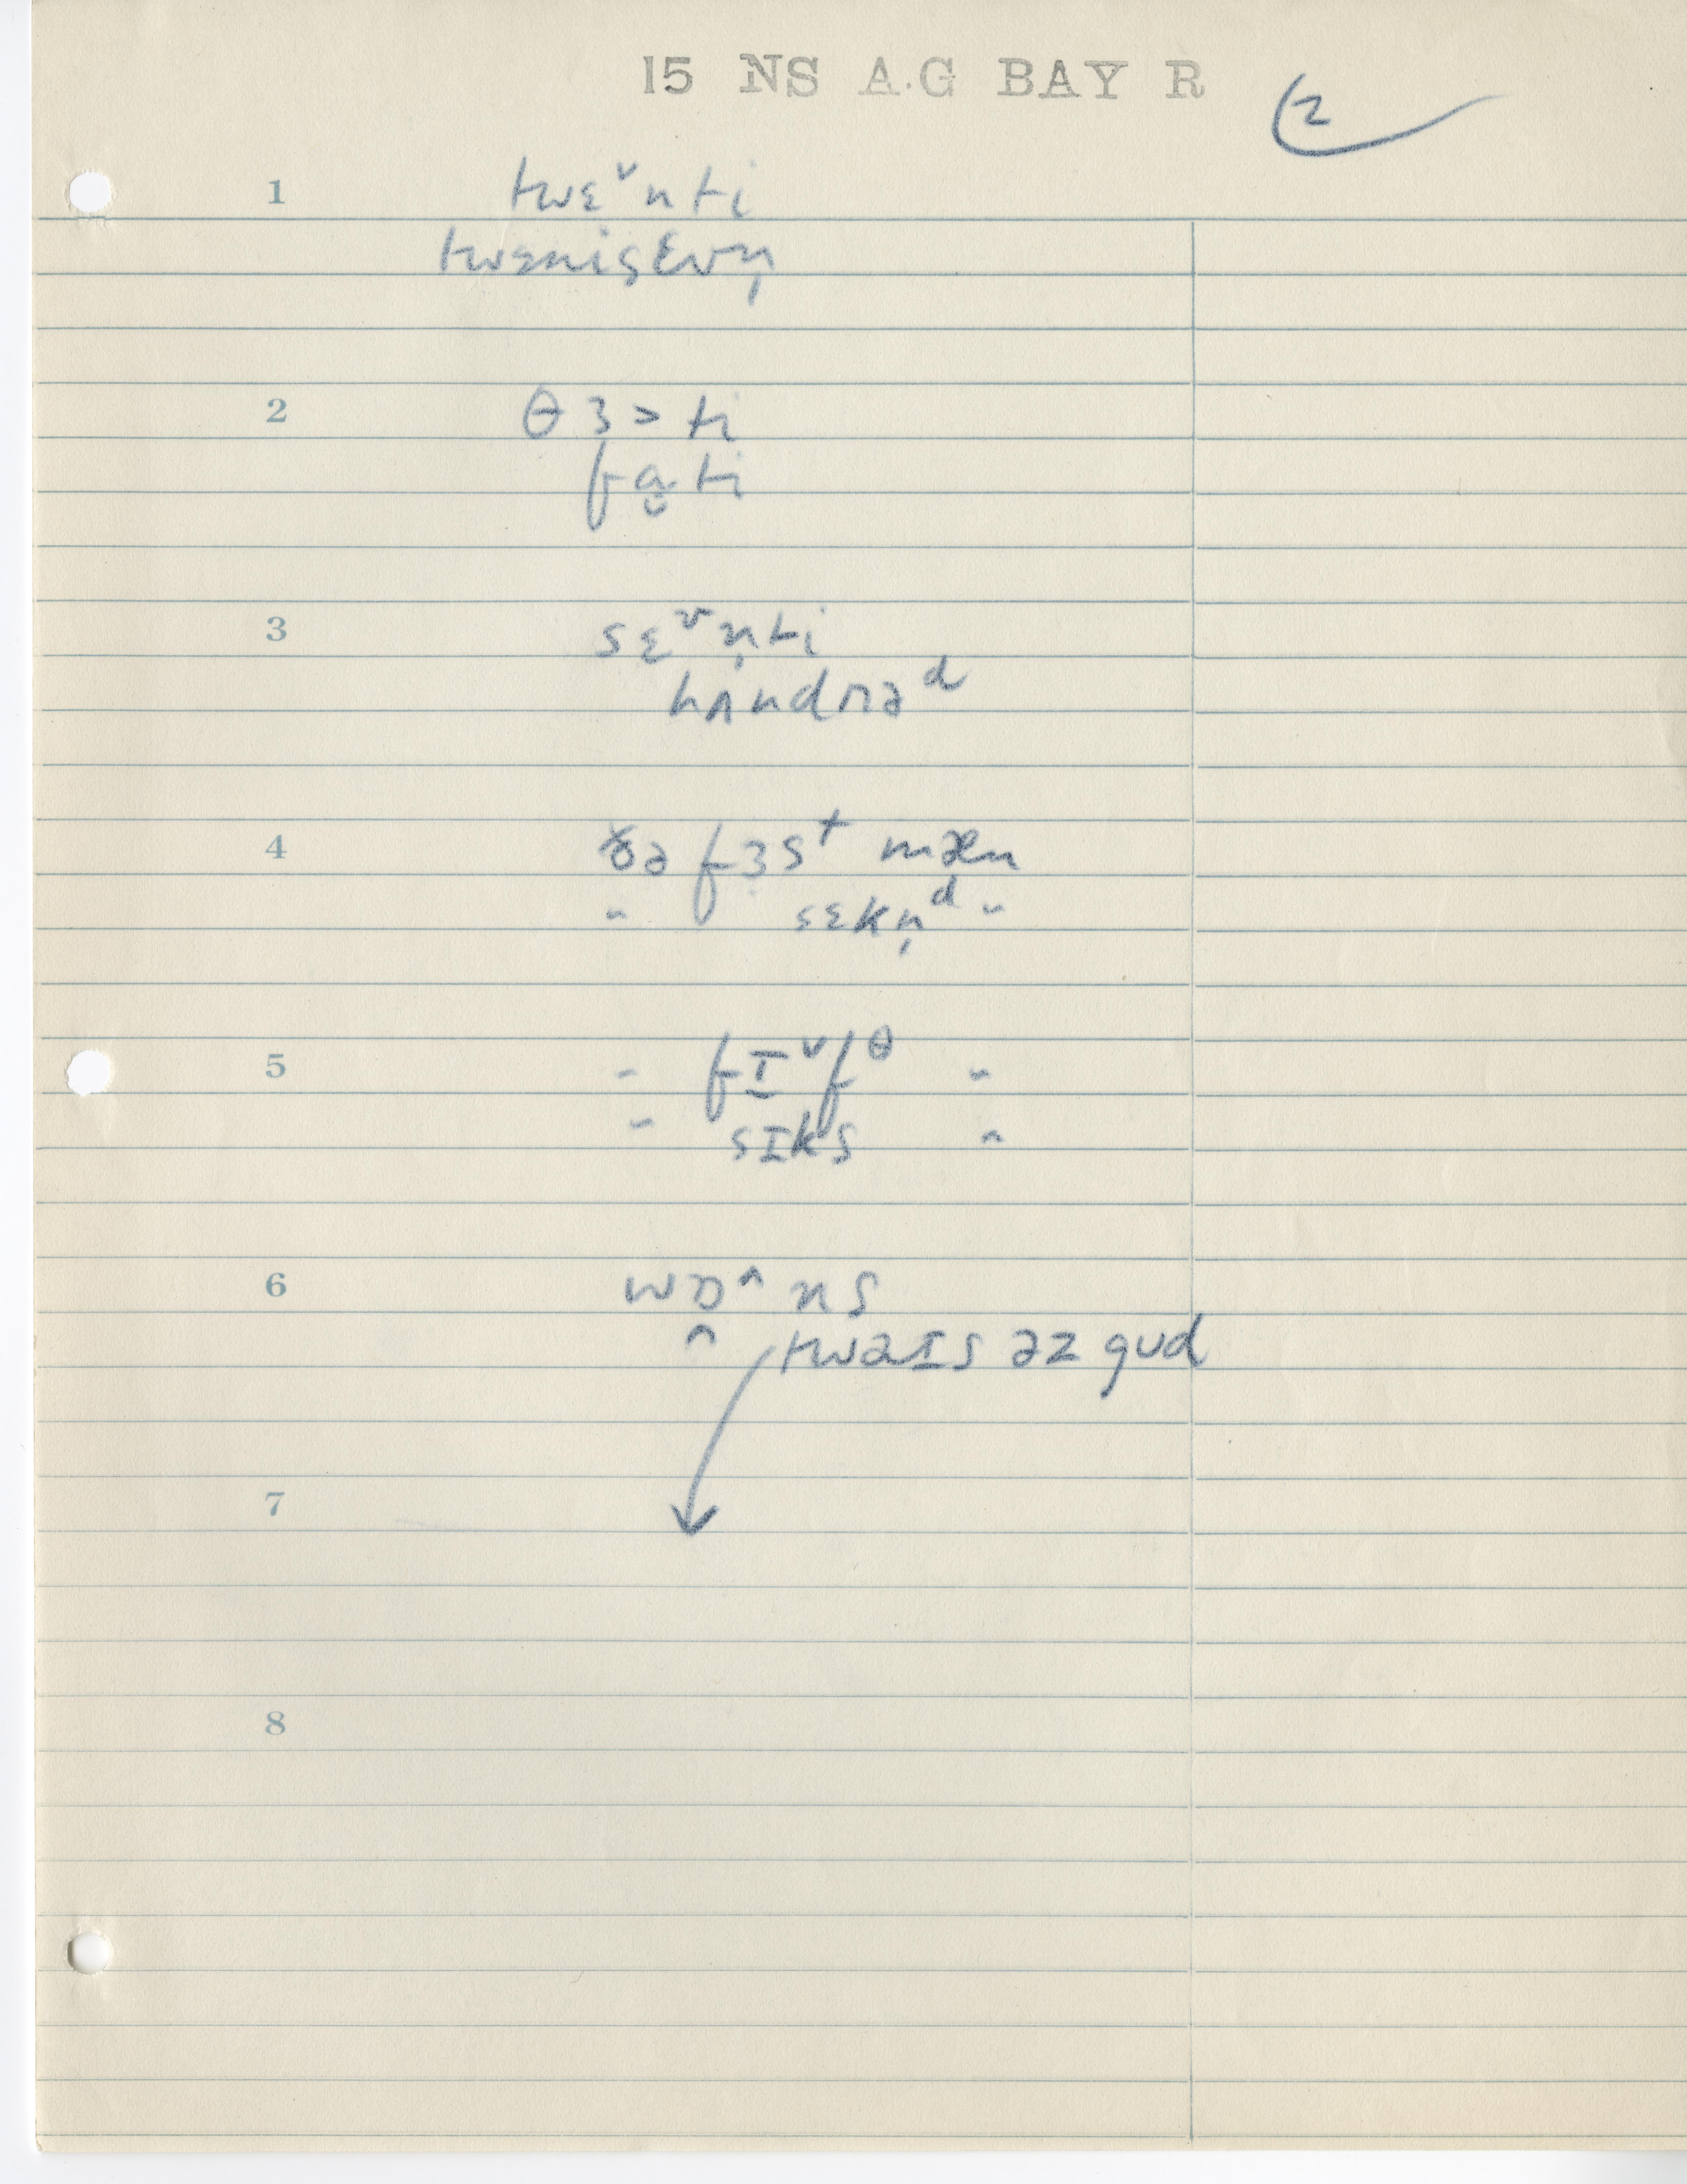 15 NS A.G BAY R
2
1 twɛ˅nti
twɛnisɛvn̩
2 θɜ>ti
fɑ̮ti
3 sɛᵛn̩ti
hʌndrəᵈ
4 ðə fɜsᵗ mæn
" sɛkn̩ᵈ "
5 " fɪ˅fᶿ "
" sɪks "
6 wɒ^ns
twaɪs əz gud
7
8